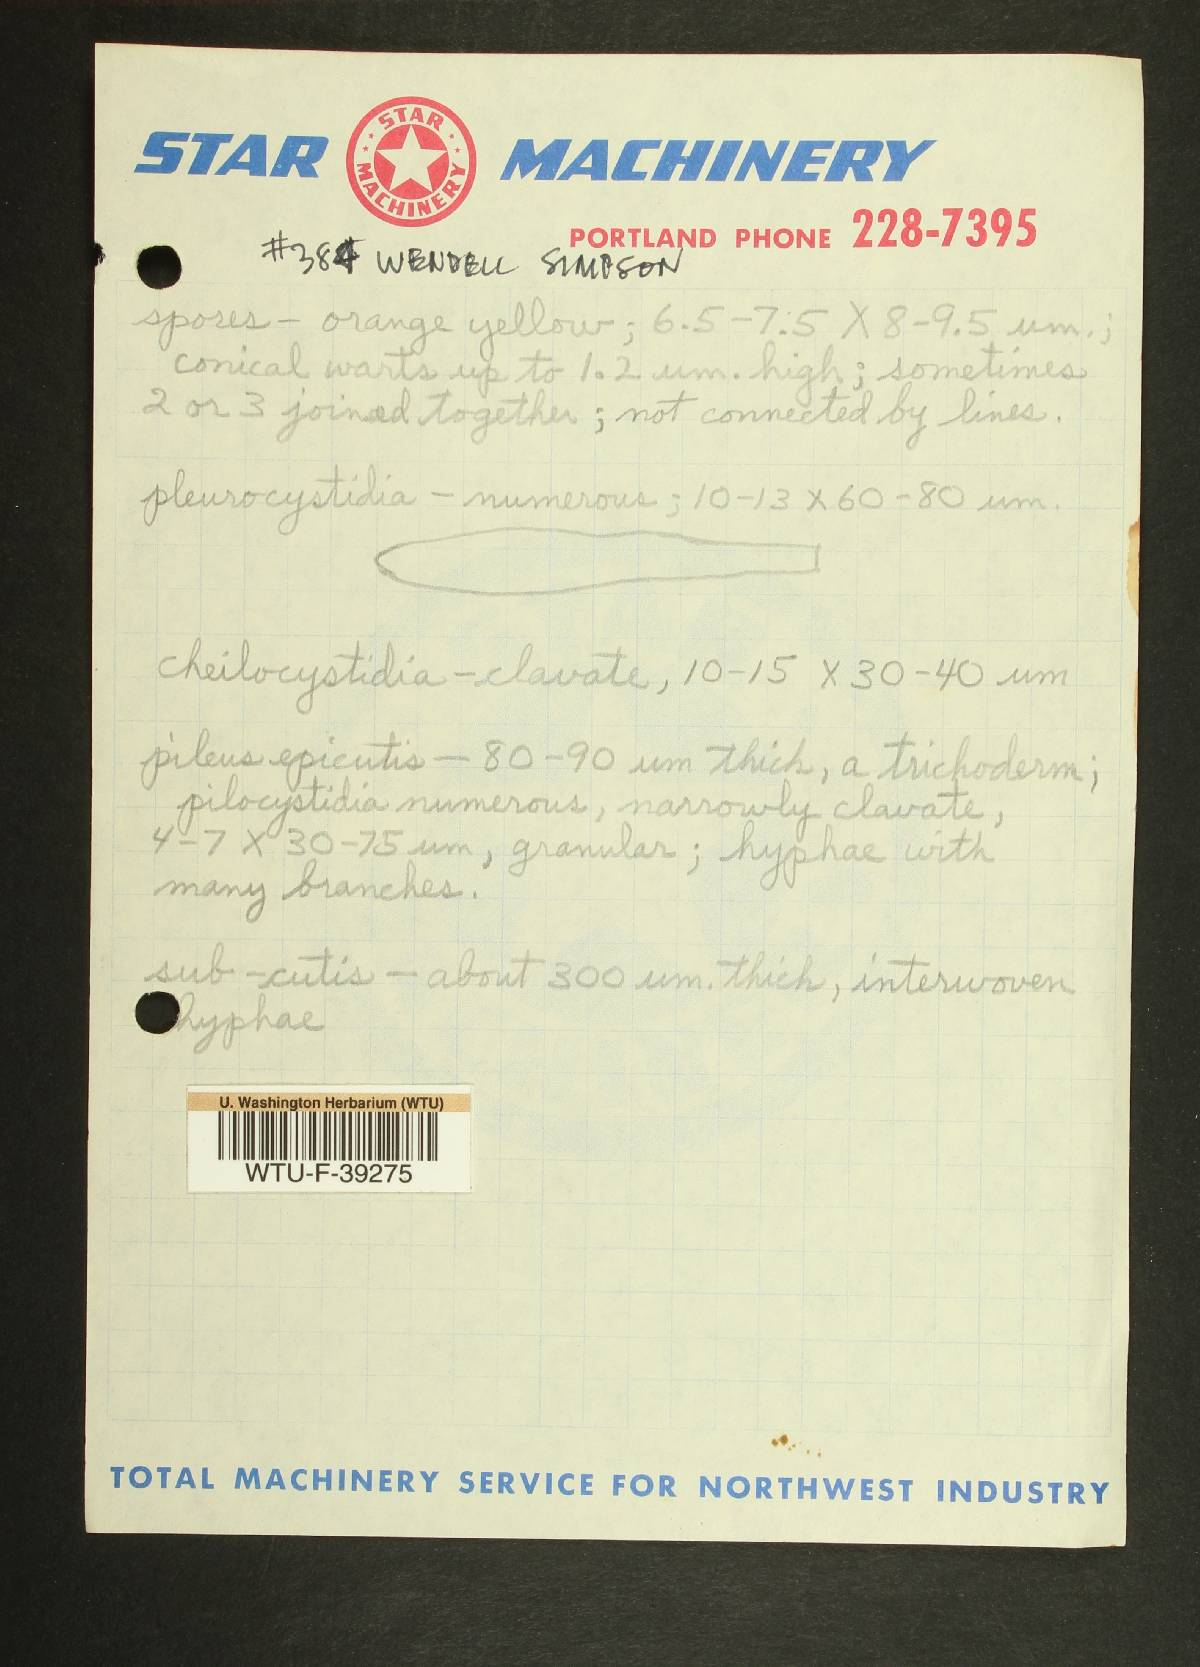 STAR MACHINERY
STAR MACHINERY
PORTLAND PHONE 228-7395
#384 WENDELL SIMPSON
spores - orange yellow; 6.5-7.5 X 8-9.5 um.;
conical warts up to 1.2 um. high; sometimes
2 or 3 joined together; not connected by lines.
pleurocystidia - numerous; 10-13 x 60-80 um.
cheilocystidia - clavate, 10-15 x 30-40 um
pileus epicutis - 80-90 um thick, a trichoderm;
pilocystidia numerous, narrowly clavate,
4-7 X 30-75 um, granular; hyphae with
many branches.
sub-cutis - about 300 um. thick, interwoven
hyphae
U. Washington Herbarium (WTU)
WTU-F-39275
TOTAL MACHINERY SERVICE FOR NORTHWEST INDUSTRY